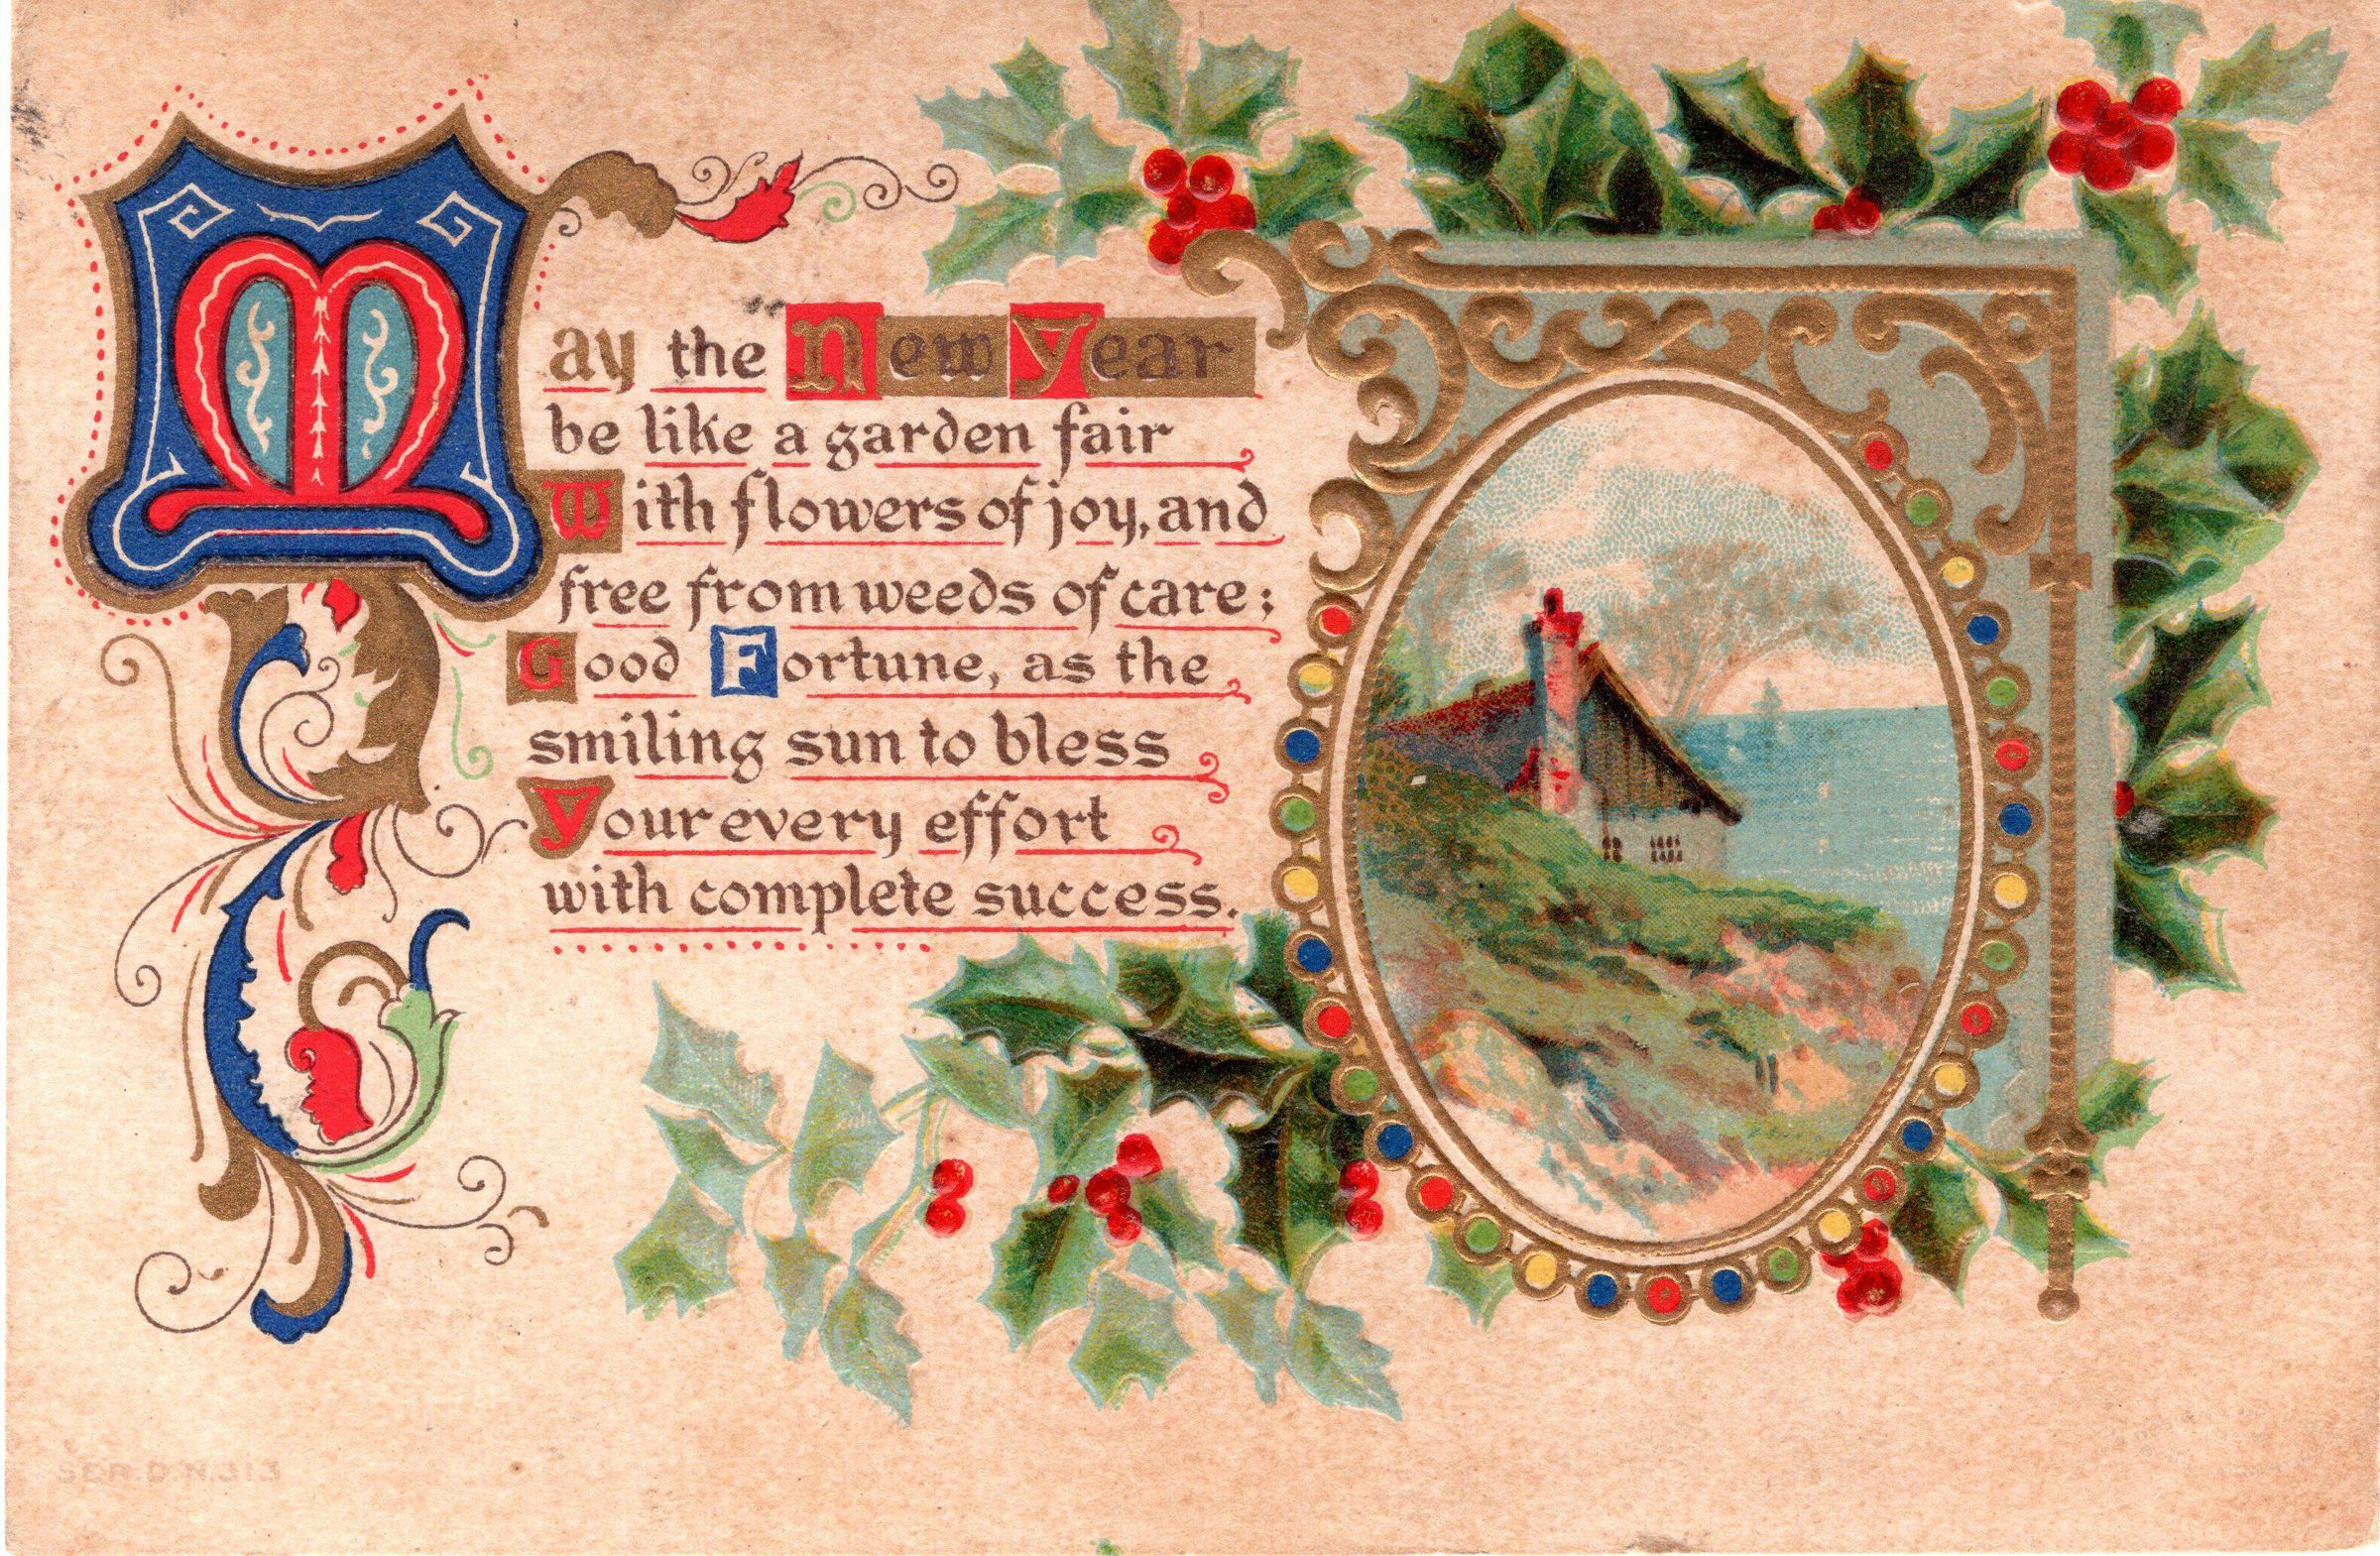 May the New Year
be like a garden fair
With flowers of joy, and
free from weeds of care;
Good Fortune, as the
smiling sun to bless
Your every effort
with complete success.
SER. D N. 313